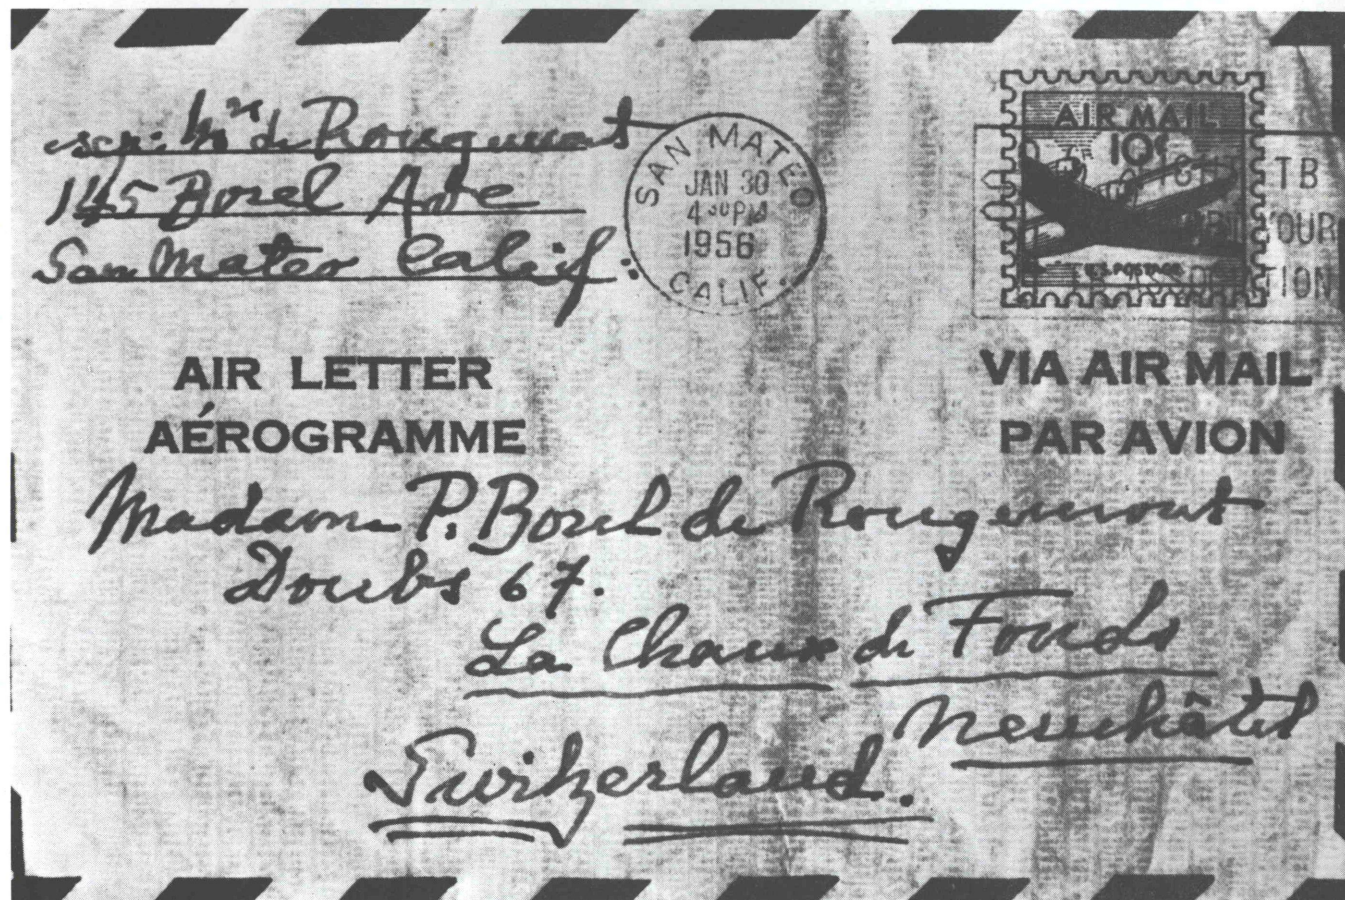 exp: Mme de Rougemont
145 Borel Ave
San Mateo Calif.
SAN MATEO
JAN 30
4 00 PM
1956
CALIF.
AIR MAIL
10¢
U.S. POSTAGE
FIGHT TB
YOUR
AIR LETTER
AÉROGRAMME
VIA AIR MAIL
PAR AVION
Madame P. Borel de Rougemont
Doubs 67.
La Chaux de Fonds
Neuchâtel
Switzerland.